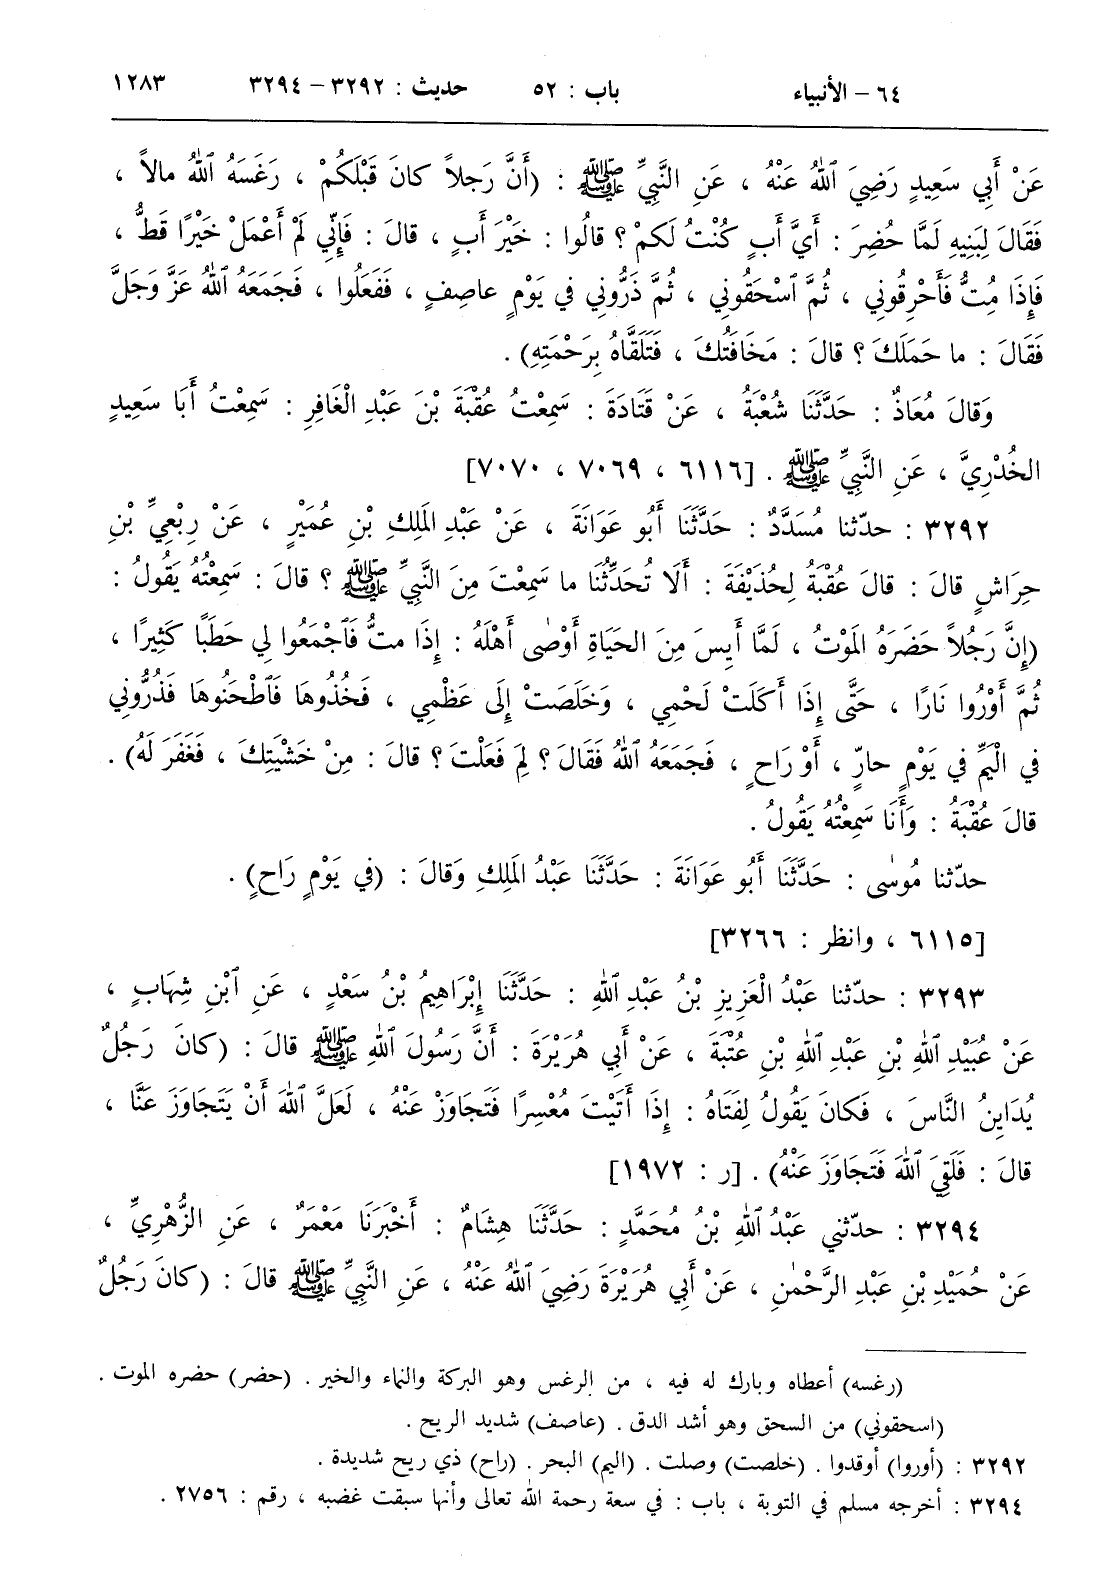 ٦٤ - الأنبياء باب : ٥٢ حديث : ٣٢٩٢ - ٣٢٩٤ ١٢٨٣
عَنْ أَبِي سَعِيدٍ رَضِيَ ٱللهُ عَنْهُ ، عَنِ النَّبِيِّ ﷺ : (أَنَّ رَجلاً كانَ قَبْلَكُمْ ، رَغَسَهُ ٱللهُ مالاً ،
فَقَالَ لِبَنِيهِ لَمَّا حُضِرَ : أَيَّ أَبٍ كُنْتُ لَكمْ ؟ قالُوا : خَيْرَ أَبٍ ، قالَ : فَإِنِّي لَمْ أَعْمَلْ خَيْرًا قَطُّ ،
فَإِذَا مِتُّ فَأَحْرِقُونِي ، ثُمَّ ٱسْحَقُونِي ، ثُمَّ ذَرُّونِي في يَوْمٍ عاصِفٍ ، فَفَعَلُوا ، فَجَمَعَهُ ٱللهُ عَزَّ وَجَلَّ
فَقَالَ : ما حَمَلَكَ ؟ قالَ : مَخَافَتُكَ ، فَتَلَقَّاهُ بِرَحْمَتِهِ) .
وَقالَ مُعَاذٌ : حَدَّثَنَا شُعْبَةُ ، عَنْ قَتَادَةَ : سَمِعْتُ عُقْبَةَ بْنَ عَبْدِ الْغَافِرِ : سَمِعْتُ أَبَا سَعِيدٍ
الخُدْرِيَّ ، عَنِ النَّبِيِّ ﷺ . [٦١١٦ ، ٧٠٦٩ ، ٧٠٧٠]
٣٢٩٢ : حدّثنا مُسَدَّدٌ : حَدَّثَنَا أَبُو عَوَانَةَ ، عَنْ عَبْدِ المَلِكِ بْنِ عُمَيْرٍ ، عَنْ رِبْعِيِّ بْنِ
حِرَاشٍ قالَ : قالَ عُقْبَةُ لِحُذَيْفَةَ : أَلَا تُحَدِّثُنَا ما سَمِعْتَ مِنَ النَّبِيِّ ﷺ ؟ قالَ : سَمِعْتُهُ يَقُولُ :
(إِنَّ رَجُلاً حَضَرَهُ المَوْتُ ، لَمَّا أَيِسَ مِنَ الحَيَاةِ أَوْصٰى أَهْلَهُ : إِذَا متُّ فَٱجْمَعُوا لِي حَطَبًا كَثِيرًا ،
ثُمَّ أَوْرُوا نَارًا ، حَتَّى إِذَا أَكَلَتْ لَحْمِي ، وَخَلَصَتْ إِلَى عَظْمِي ، فَخُذُوهَا فَٱطْحَنُوهَا فَذُرُّونِي
في الْيَمِّ في يَوْمٍ حارٍّ ، أَوْ رَاحٍ ، فَجَمَعَهُ ٱللهُ فَقَالَ ؟ لِمَ فَعَلْتَ ؟ قالَ : مِنْ خَشْيَتِكَ ، فَغَفَرَ لَهُ) .
قالَ عُقْبَةُ : وَأَنَا سَمِعْتُهُ يَقُولُ .
حدّثنا مُوسٰى : حَدَّثَنَا أَبُو عَوَانَةَ : حَدَّثَنَا عَبْدُ المَلِكِ وَقالَ : (في يَوْمٍ رَاحٍ) .
[٦١١٥ ، وانظر : ٣٢٦٦]
٣٢٩٣ : حدّثنا عَبْدُ الْعَزِيزِ بْنُ عَبْدِ ٱللهِ : حَدَّثَنَا إِبْرَاهِيمُ بْنُ سَعْدٍ ، عَنِ ٱبْنِ شِهَابٍ ،
عَنْ عُبَيْدِ ٱللهِ بْنِ عَبْدِ ٱللهِ بْنِ عُتْبَةَ ، عَنْ أَبِي هُرَيْرَةَ : أَنَّ رَسُولَ ٱللهِ ﷺ قالَ : (كانَ رَجُلٌ
يُدَايِنُ النَّاسَ ، فَكانَ يَقُولُ لِفَتَاهُ : إِذَا أَتَيْتَ مُعْسِرًا فَتَجَاوَزْ عَنْهُ ، لَعَلَّ ٱللهَ أَنْ يَتَجَاوَزَ عَنَّا ،
قالَ : فَلَقِيَ ٱللهَ فَتَجَاوَزَ عَنْهُ) . [ر : ١٩٧٢]
٣٢٩٤ : حدّثني عَبْدُ ٱللهِ بْنُ مُحَمَّدٍ : حَدَّثَنَا هِشَامٌ : أَخْبَرَنَا مَعْمَرٌ ، عَنِ الزُّهْرِيِّ ،
عَنْ حُمَيْدِ بْنِ عَبْدِ الرَّحْمٰنِ ، عَنْ أَبِي هُرَيْرَةَ رَضِيَ ٱللهُ عَنْهُ ، عَنِ النَّبِيِّ ﷺ قالَ : (كانَ رَجُلٌ
(رغسه) أعطاه وبارك له فيه ، من الرغس وهو البركة والنماء والخير . (حضر) حضره الموت .
(اسحقوني) من السحق وهو أشد الدق . (عاصف) شديد الريح .
٣٢٩٢ : (أوروا) أوقدوا . (خلصت) وصلت . (اليم) البحر . (راح) ذي ريح شديدة .
٣٢٩٤ : أخرجه مسلم في التوبة ، باب : في سعة رحمة الله تعالى وأنها سبقت غضبه ، رقم : ٢٧٥٦ .